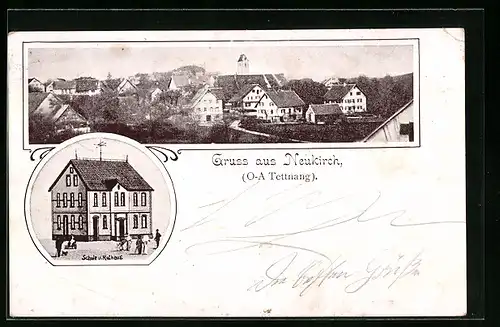 Gruss aus Neukirch,
(O-A Tettnang).
Schule u. Rathaus
Die besten Grüße